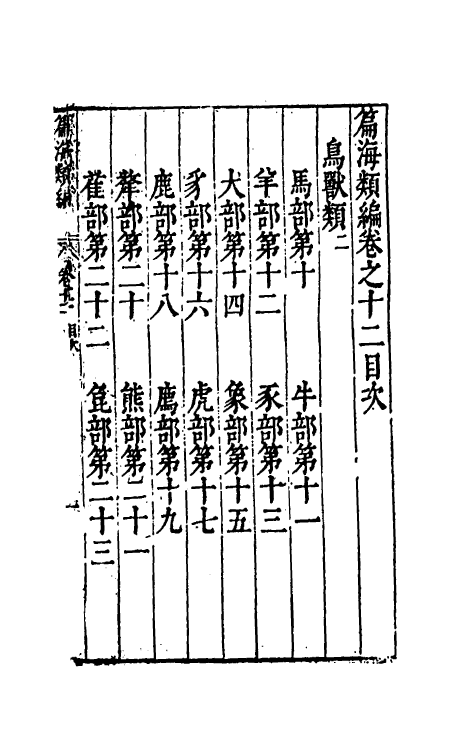 篇海類編卷之十二目次
鳥獸類二
馬部第十　牛部第十一
羊部第十二　豕部第十三
犬部第十四　象部第十五
豸部第十六　虎部第十七
鹿部第十八　廌部第十九
犛部第二十　熊部第二十一
萑部第二十二　㲋部第二十三
篇海類編　卷十二　目次　一